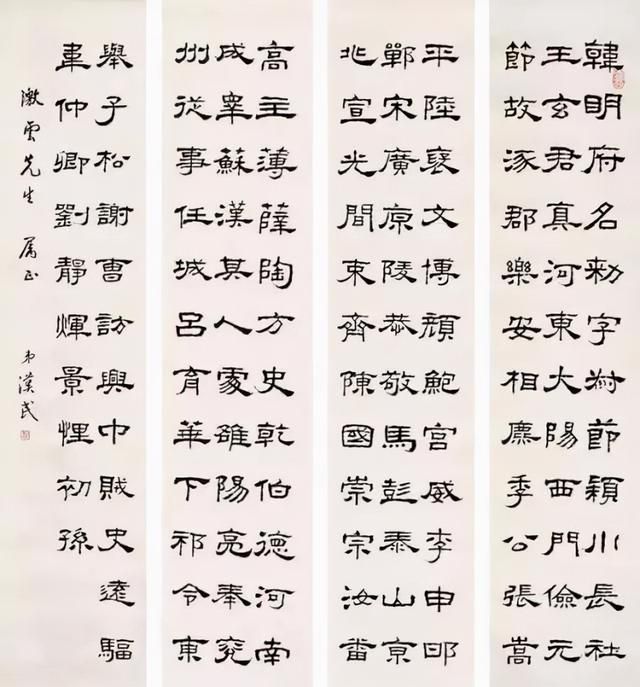 韓明府名勑字叔節穎川長社
王玄君真河東大陽西門儉元
節故涿郡樂安相麃季公張嵩
平陸裦文博顏鮑宮威李申邯
鄲宋廣原陵恭敬馬彭泰山京
兆宣光間束齊陳國崇宗汝番
高主薄薛陶方史乾伯德河南
成睪蘇漢其人處雒陽亮奉兖
州從事任城呂育華下邳令東
舉子松謝曹訪興中賊史遠驅
韋仲卿劉靜煇景悝初孫
澂雲先生 屬正 弟漢民